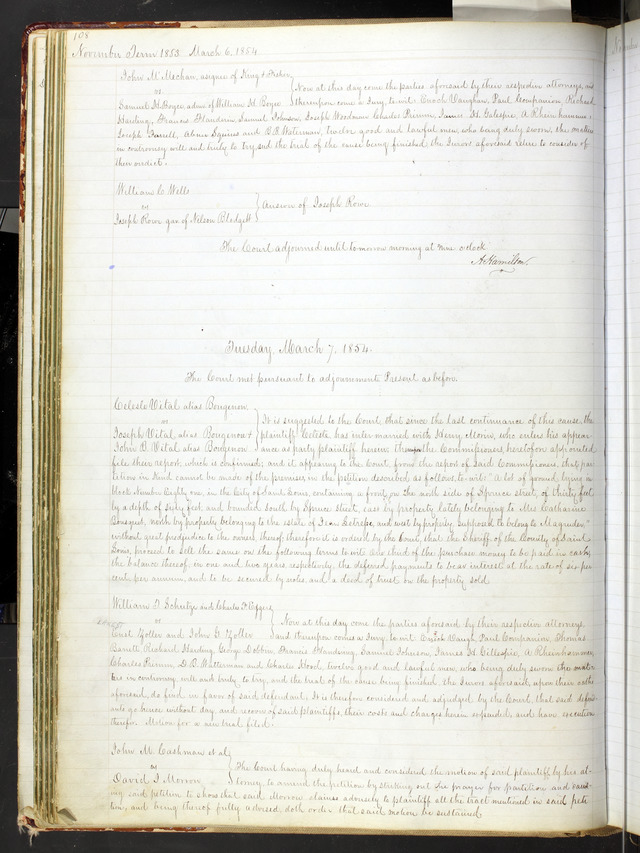 108
November Term 1853. March 6, 1854
John McMechan, assignee of King & Fisher
vs.
Samuel H. Boyer, admr of William H. Boyer
Now at this day come the parties aforesaid by their respective attorneys, and
thereupon comes a Jury, to wit: Enoch Vaughan, Paul Companion, Richard
Harding, Francis Handwin, Samuel Johnson, Joseph Woodman, Charles Pierson, James H. Galespie, A Rheinhammer,
Joseph Farrell, Abner Squires and B. B. Waterman, twelve good and lawful men, who being duly sworn, the matters
in controversy well and truly to try, and the trial of the cause being finished the Jurors aforesaid retire to consider of
their verdict.
William C. Wells
vs
Joseph Rowe gar. of Nelson Blodgett
Answer of Joseph Rowe
The Court adjourned until tomorrow morning at nine o'clock
A. Hamilton.
Tuesday, March 7, 1854.
The Court met pursuant to adjournment. Present as before.
Celeste Vital alias Bongenou
vs
Joseph Vital alias Bongenou &
John B. Vital alias Bongenou
It is suggested to the Court that since the last continuance of this cause, the
plaintiff Celeste has intermarried with Henry Morin, who enters his appear-
ance as party plaintiff herein; the Commissioners, heretofore appointed
file their report, which is confirmed; and it appearing to the Court from the report of said Commissioners, that par-
tition in kind cannot be made of the premises in the petition described, as follows, to-wit: "A lot of ground lying in
block Number Eighty one, in the City of Saint Louis, containing a front on the north side of Spruce street, of thirty feet
by a depth of sixty feet, and bounded south by Spruce street, east by property lately belonging to Mrs Catharine
Bousquet, north by property belonging to the estate of and west by property supposed to belong to Maguire,"
without great prejudice to the owners thereof; therefore it is ordered by the Court, that the Sheriff of the County of Saint
Louis, proceed to sell the same on the following terms to wit: one third of the purchase money to be paid in cash,
the balance thereof, in one and two years respectively, the deferred payments to bear interest at the rate of six per
cent. per annum, and to be secured by notes and a deed of trust on the property sold.
William T. and Charles
vs
Ernst Zoller and John G. Zoller
Now at this day come the parties aforesaid by their respective attorneys,
and thereupon comes a Jury, to wit: Enoch Vaugh, Paul Companion, Thomas
Barrett, Richard Harding, George Dobbin, Francis Handwing, Samuel Johnson, James H. Gillespie, A Rheinhammer,
Charles Pierson, D. B. Watterman and Charles Hood, twelve good and lawful men, who being duly sworn the mat-
ters in controversy, well and truly to try, and the trial of the cause being finished, the Jurors aforesaid, upon their oaths
aforesaid, do find in favor of said defendant; It is therefore considered and adjudged by the Court, that said defend-
ants go hence without day, and recover of said plaintiffs, their costs and charges herein expended, and have execution
therefor. Motion for a new trial filed.
John M. Cashman et al
vs
David J Morrow
The Court having duly heard and considered the motion of said plaintiff, by his at-
torney, to amend the petition by striking out the prayer for partition and caus-
ing said petition to show that said Morrow claims adversely to plaintiff all the tract mentioned in said peti-
tion, and being thereof fully advised, doth order that said motion be sustained.